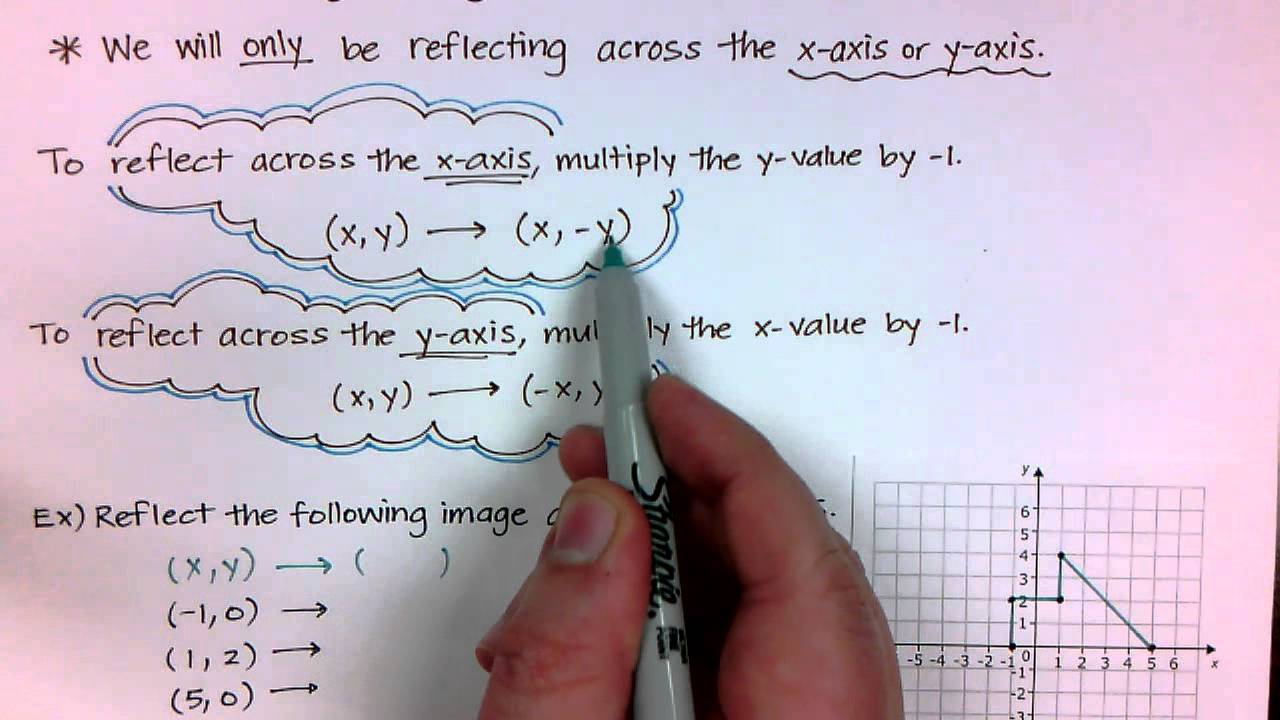 * We will only be reflecting across the x-axis or y-axis.
To reflect across the x-axis, multiply the y-value by -1.
(x, y) → (x, -y)
To reflect across the y-axis, mul ly the x-value by -1.
(x, y) → (-x, y
Ex) Reflect the following image
(x, y) → ( )
(-1, 0) →
(1, 2) →
(5, 0) →
Sharpie.
y
6
5
4
3
2
1
-5 -4 -3 -2 -1 0 1 2 3 4 5 6 x
-1
-2
-3